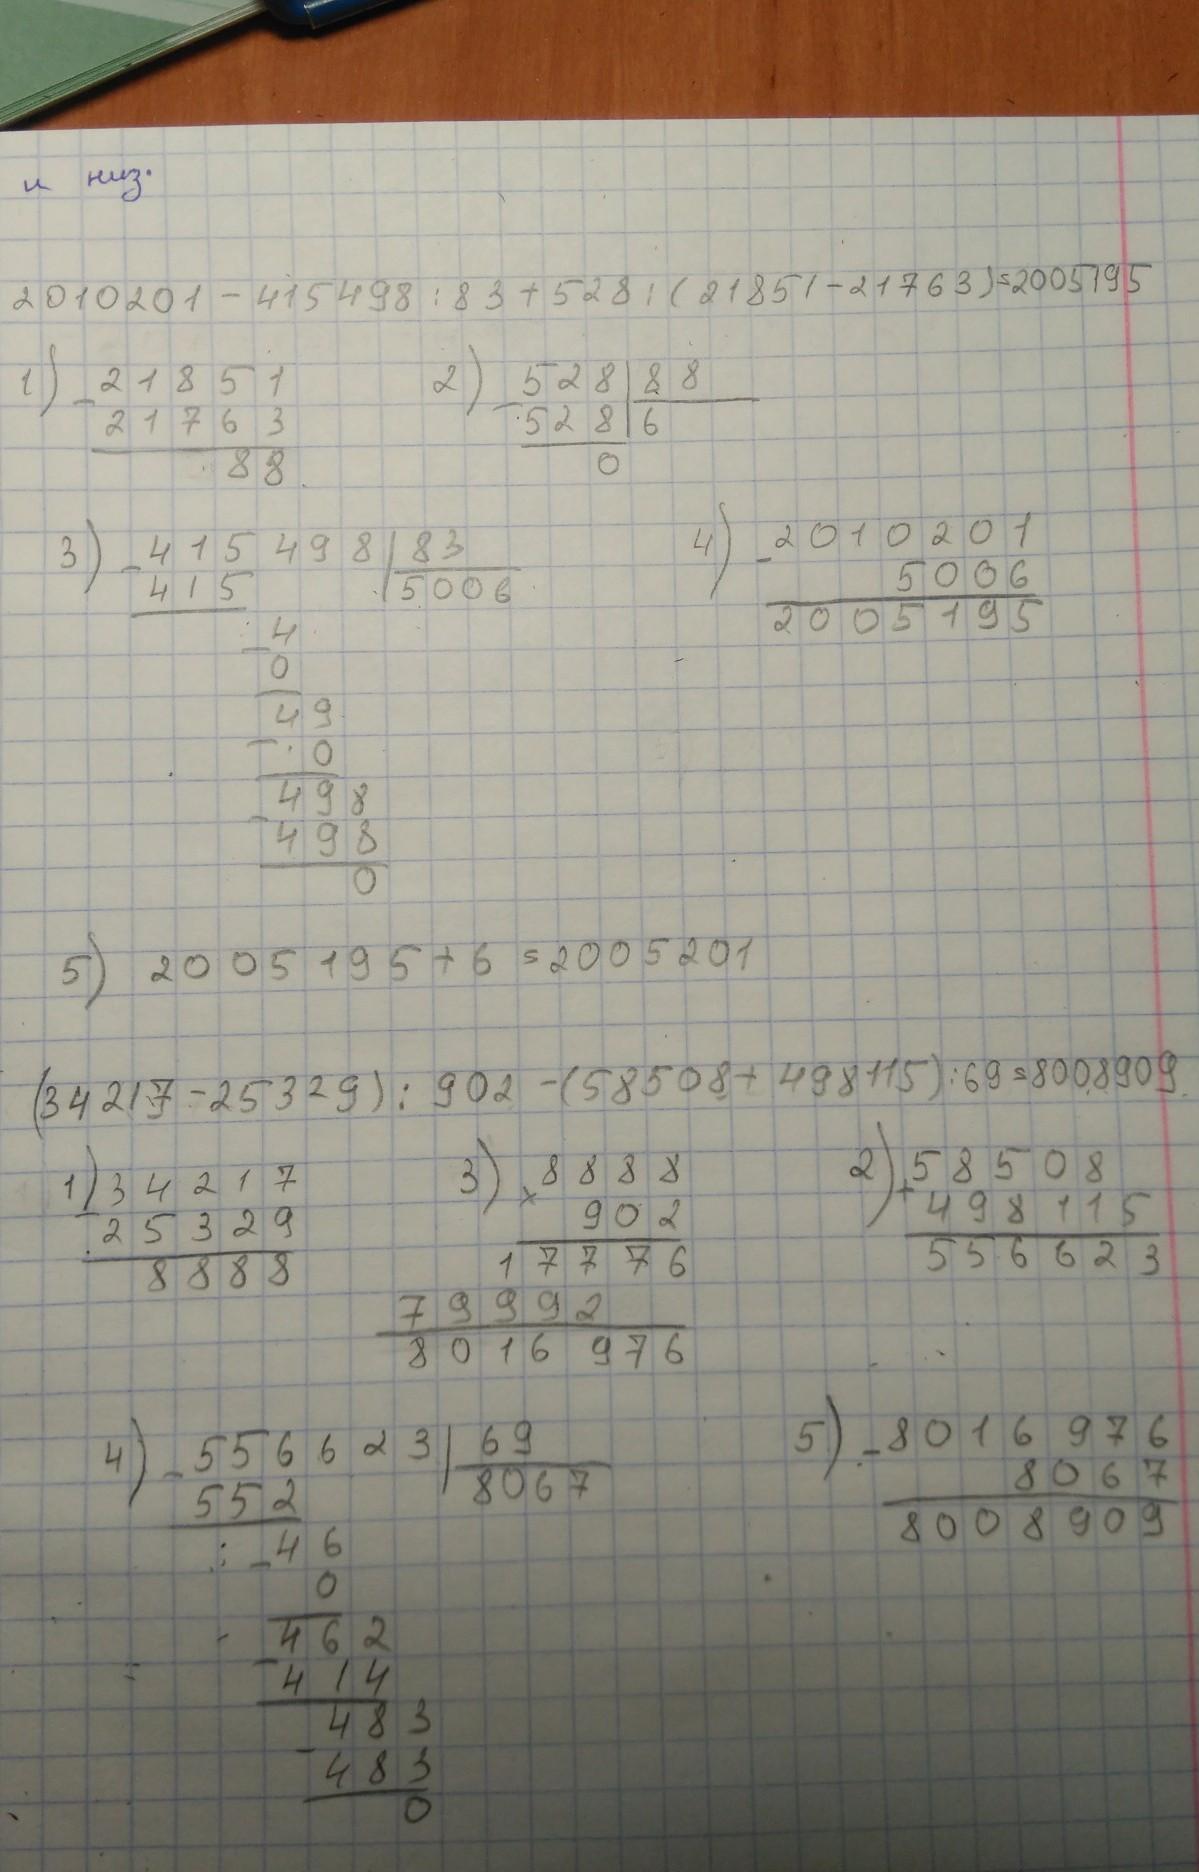 и низ.
2010201-415498:83+528:(21851-21763)=2005195
1) -21851
21763
88
2) -528|88
528|6
0
3) -415498|83
415 |5006
-4
0
49
-0
498
-498
0
4) -2010201
5006
2005195
5) 2005195+6=2005201
(34217-25329):902-(58508+498115):69=8008909
1) 34217
-25329
8888
3) ×8888
902
17776
79992
8016976
2) +58508
498115
556623
4) -556623|69
552 |8067
-46
0
462
-414
483
-483
0
5) -8016976
8067
8008909